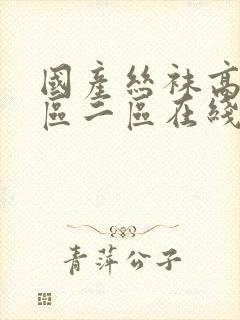 國產絲袜高
區二區在綫
青萍公子